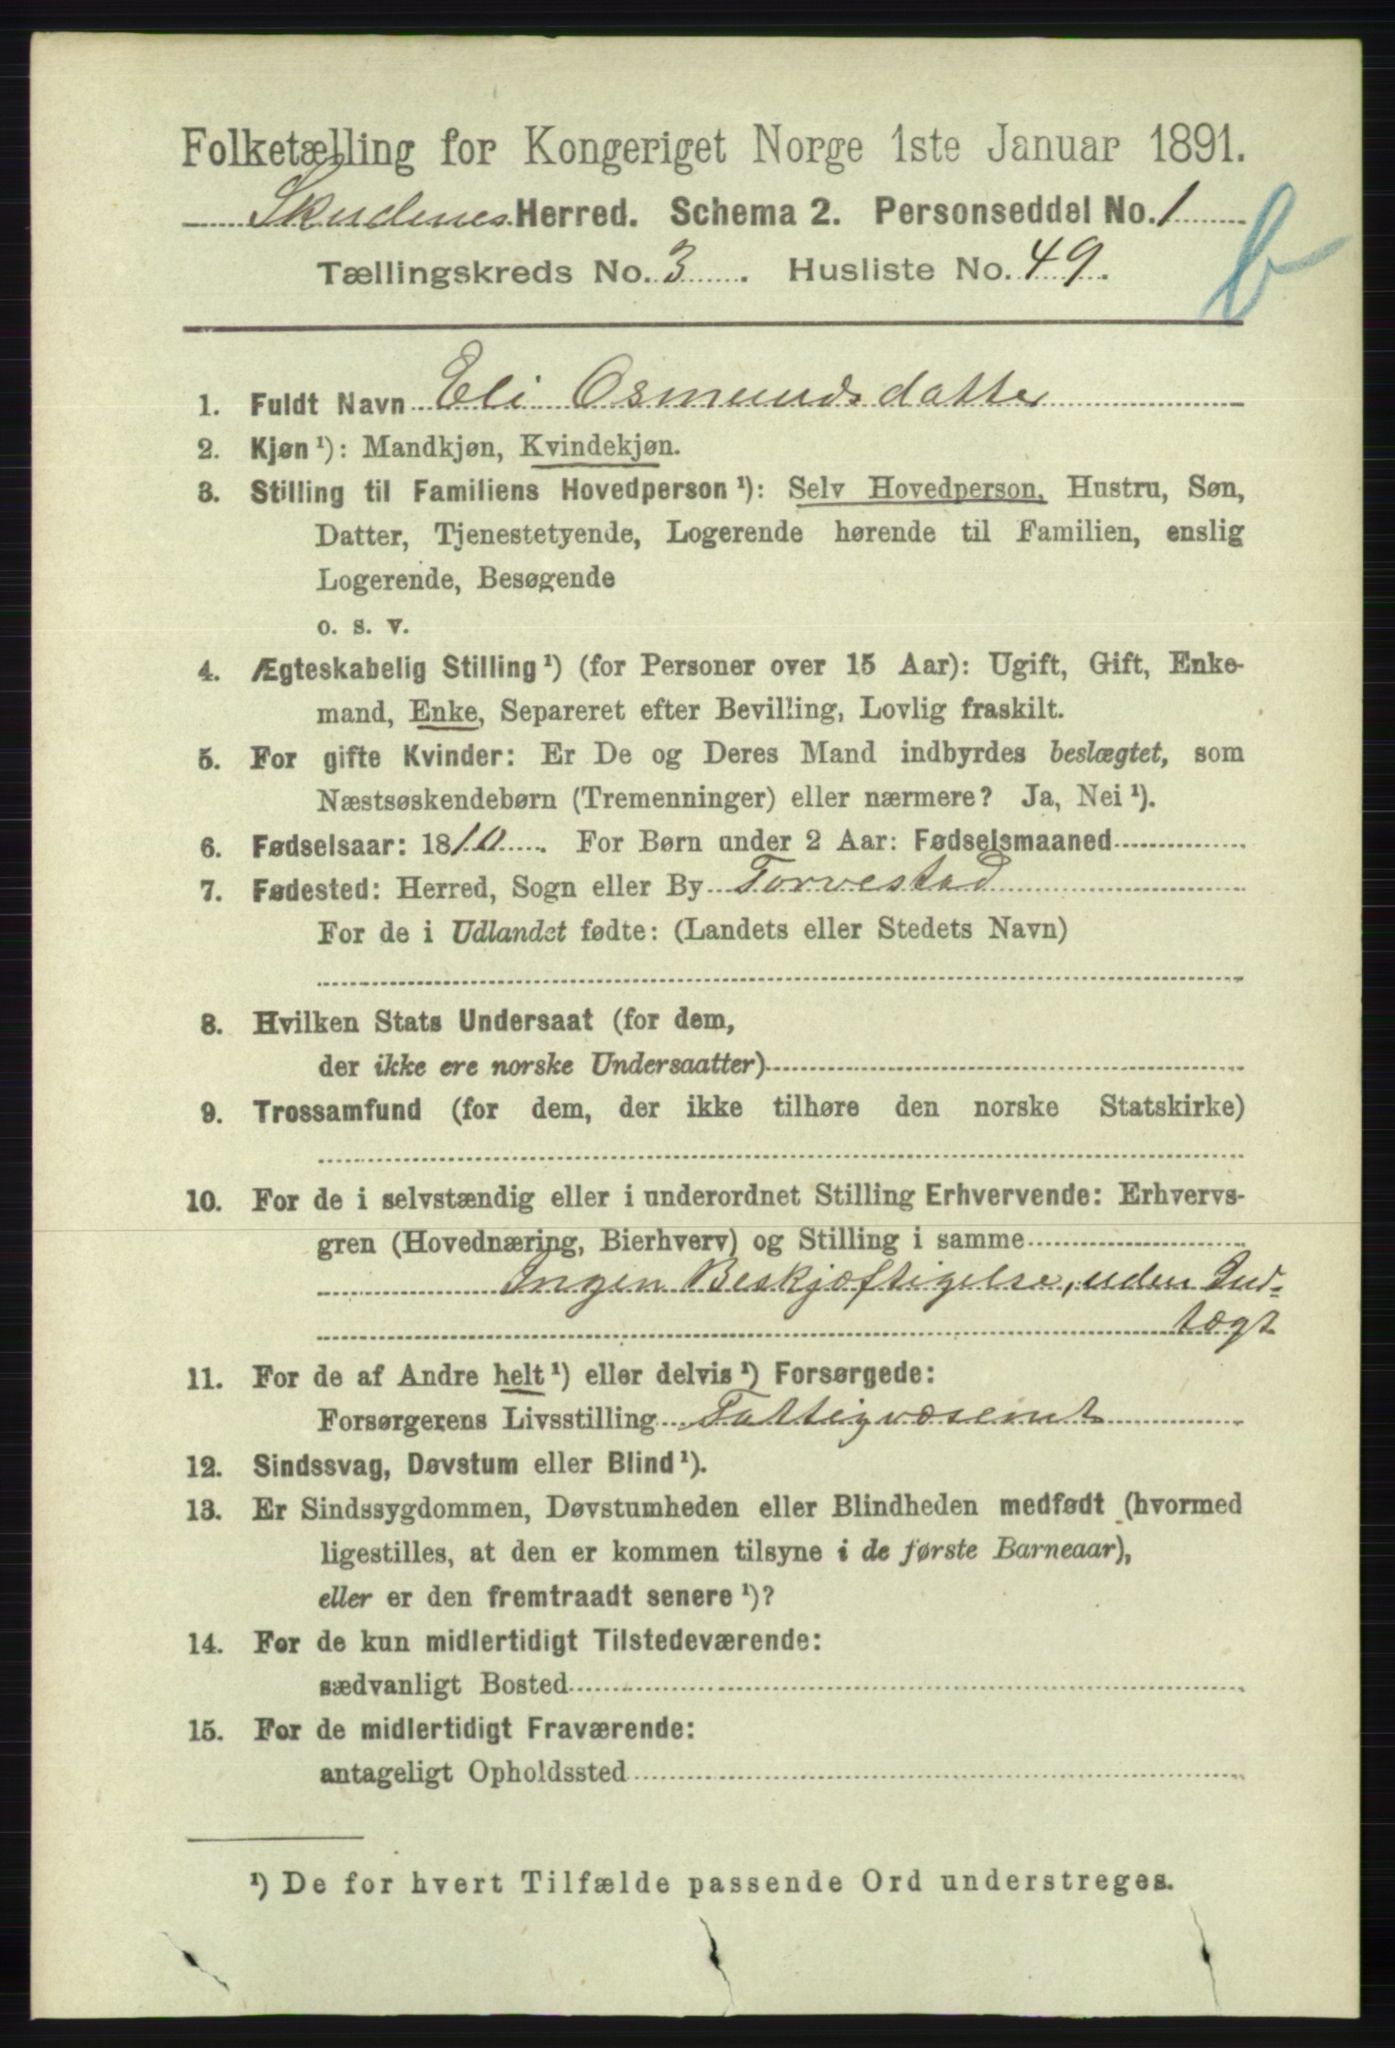 Folketælling for Kongeriget Norge 1ste Januar 1891.
Skudenes Herred. Schema 2. Personseddel No. 1
Tællingskreds No. 3. Husliste No. 49.
b
1. Fuldt Navn Eli Osmundsdatter
2. Kjøn¹): Mandkjøn, Kvindekjøn.
3. Stilling til Familiens Hovedperson¹): Selv Hovedperson, Hustru, Søn,
Datter, Tjenestetyende, Logerende hørende til Familien, enslig
Logerende, Besøgende
o. s. v.
4. Ægteskabelig Stilling¹) (for Personer over 15 Aar): Ugift, Gift, Enke-
mand, Enke, Separeret efter Bevilling, Lovlig fraskilt.
5. For gifte Kvinder: Er De og Deres Mand indbyrdes beslægtet, som
Næstsøskendebørn (Tremenninger) eller nærmere? Ja, Nei¹).
6. Fødselsaar: 1810. For Børn under 2 Aar: Fødselsmaaned
7. Fødested: Herred, Sogn eller By Torvestad
For de i Udlandet fødte: (Landets eller Stedets Navn)
8. Hvilken Stats Undersaat (for dem,
der ikke ere norske Undersaatter)
9. Trossamfund (for dem, der ikke tilhøre den norske Statskirke)
10. For de i selvstændig eller i underordnet Stilling Erhvervende: Erhvervs-
gren (Hovednæring, Bierhverv) og Stilling i samme
Ingen Beskjæftigelse, uden Ind-
tægt
11. For de af Andre helt¹) eller delvis¹) Forsørgede:
Forsørgerens Livsstilling Fattigvæsenet
12. Sindssvag, Døvstum eller Blind¹).
13. Er Sindssygdommen, Døvstumheden eller Blindheden medfødt (hvormed
ligestilles, at den er kommen tilsyne i de første Barneaar),
eller er den fremtraadt senere¹)?
14. For de kun midlertidigt Tilstedeværende:
sædvanligt Bosted
15. For de midlertidigt Fraværende:
antageligt Opholdssted
¹) De for hvert Tilfælde passende Ord understreges.